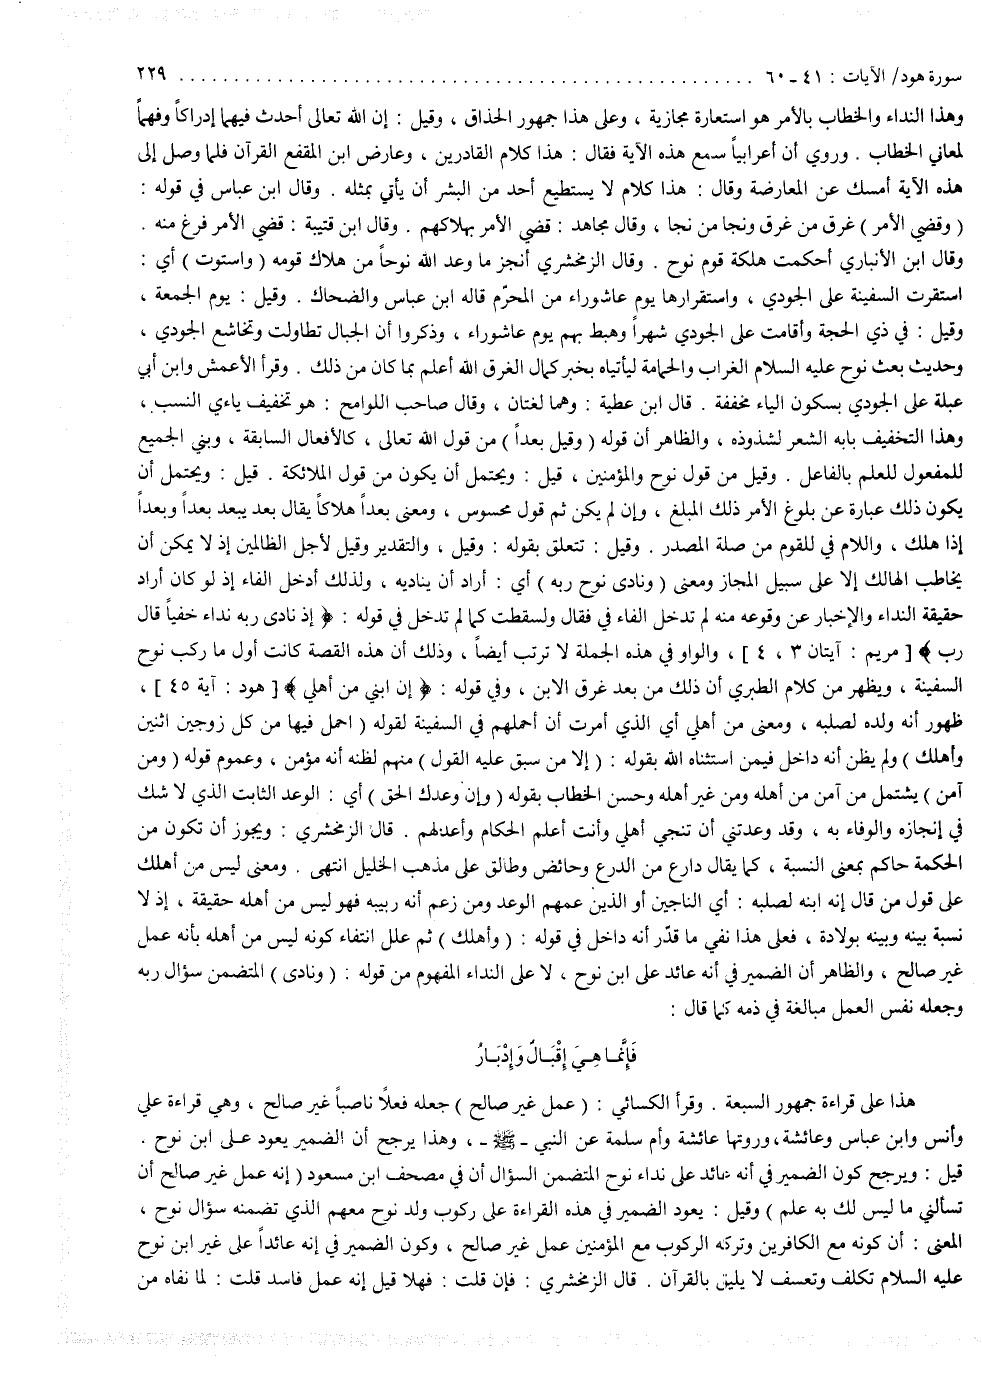 سورة هود/ الآيات : ٤١ ـ ٦٠ ........................................................ ٢٢٩
وهذا النداء والخطاب بالأمر هو استعارة مجازية ، وعلى هذا جمهور الحذاق ، وقيل : إن الله تعالى أحدث فيهما إدراكاً وفهماً
لمعاني الخطاب . وروي أن أعرابياً سمع هذه الآية فقال : هذا كلام القادرين ، وعارض ابن المقفع القرآن فلما وصل إلى
هذه الآية أمسك عن المعارضة وقال : هذا كلام لا يستطيع أحد من البشر أن يأتي بمثله . وقال ابن عباس في قوله :
( وقضي الأمر ) غرق من غرق ونجا من نجا ، وقال مجاهد : قضي الأمر بهلاكهم . وقال ابن قتيبة : قضي الأمر فرغ منه .
وقال ابن الأنباري أحكمت هلكة قوم نوح . وقال الزمخشري أنجز ما وعد الله نوحاً من هلاك قومه ( واستوت ) أي :
استقرت السفينة على الجودي ، واستقرارها يوم عاشوراء من المحرّم قاله ابن عباس والضحاك . وقيل : يوم الجمعة ،
وقيل : في ذي الحجة وأقامت على الجودي شهراً وهبط بهم يوم عاشوراء ، وذكروا أن الجبال تطاولت وتخاشع الجودي ،
وحديث بعث نوح عليه السلام الغراب والحمامة ليأتياه بخبر كمال الغرق الله أعلم بما كان من ذلك . وقرأ الأعمش وابن أبي
عبلة على الجودي بسكون الياء مخففة . قال ابن عطية : وهما لغتان ، وقال صاحب اللوامح : هو تخفيف ياءي النسب ،
وهذا التخفيف بابه الشعر لشذوذه ، والظاهر أن قوله ( وقيل بعداً ) من قول الله تعالى ، كالأفعال السابقة ، وبني الجميع
للمفعول للعلم بالفاعل . وقيل من قول نوح والمؤمنين ، قيل : ويحتمل أن يكون من قول الملائكة . قيل : ويحتمل أن
يكون ذلك عبارة عن بلوغ الأمر ذلك المبلغ ، وإن لم يكن ثم قول محسوس ، ومعنى بعداً هلاكاً يقال بعد يبعد بعداً وبعداً
إذا هلك ، واللام في للقوم من صلة المصدر . وقيل : تتعلق بقوله : وقيل ، والتقدير وقيل لأجل الظالمين إذ لا يمكن أن
يخاطب الهالك إلا على سبيل المجاز ومعنى ( ونادى نوح ربه ) أي : أراد أن يناديه ، ولذلك أدخل الفاء إذ لو كان أراد
حقيقة النداء والإخبار عن وقوعه منه لم تدخل الفاء في فقال ولسقطت كما لم تدخل في قوله : ﴿ إذ نادى ربه نداء خفياً قال
رب ﴾ [ مريم : آيتان ٣ ، ٤ ] ، والواو في هذه الجملة لا ترتب أيضاً ، وذلك أن هذه القصة كانت أول ما ركب نوح
السفينة ، ويظهر من كلام الطبري أن ذلك من بعد غرق الابن ، وفي قوله : ﴿ إن ابني من أهلي ﴾ [ هود : آية ٤٥ ] ،
ظهور أنه ولده لصلبه ، ومعنى من أهلي أي الذي أمرت أن أحملهم في السفينة لقوله ( احمل فيها من كل زوجين اثنين
وأهلك ) ولم يظن أنه داخل فيمن استثناه الله بقوله : ( إلا من سبق عليه القول ) منهم لظنه أنه مؤمن ، وعموم قوله ( ومن
آمن ) يشتمل من آمن من أهله ومن غير أهله وحسن الخطاب بقوله ( وإن وعدك الحق ) أي : الوعد الثابت الذي لا شك
في إنجازه والوفاء به ، وقد وعدتني أن تنجي أهلي وأنت أعلم الحكام وأعدلهم . قال الزمخشري : ويجوز أن تكون من
الحكمة حاكم بمعنى النسبة ، كما يقال دارع من الدرع وحائض وطالق على مذهب الخليل انتهى . ومعنى ليس من أهلك
على قول من قال إنه ابنه لصلبه : أي الناجين أو الذين عمهم الوعد ومن زعم أنه ربيبه فهو ليس من أهله حقيقة ، إذ لا
نسبة بينه وبينه بولادة ، فعلى هذا نفي ما قدّر أنه داخل في قوله : ( وأهلك ) ثم علل انتفاء كونه ليس من أهله بأنه عمل
غير صالح ، والظاهر أن الضمير في أنه عائد على ابن نوح ، لا على النداء المفهوم من قوله : ( ونادى ) المتضمن سؤال ربه
وجعله نفس العمل مبالغة في ذمه كما قال :
فَإِنَّمَا هِيَ إِقْبَالٌ وَإِدْبَارُ
هذا على قراءة جمهور السبعة . وقرأ الكسائي : ( عمل غير صالح ) جعله فعلاً ناصباً غير صالح ، وهي قراءة علي
وأنس وابن عباس وعائشة، وروتها عائشة وأم سلمة عن النبي ـ ﷺ ـ ، وهذا يرجح أن الضمير يعود على ابن نوح .
قيل : ويرجح كون الضمير في أنه عائد على نداء نوح المتضمن السؤال أن في مصحف ابن مسعود ( إنه عمل غير صالح أن
تسألني ما ليس لك به علم ) وقيل : يعود الضمير في هذه القراءة على ركوب ولد نوح معهم الذي تضمنه سؤال نوح ،
المعنى : أن كونه مع الكافرين وتركه الركوب مع المؤمنين عمل غير صالح ، وكون الضمير في إنه عائداً على غير ابن نوح
عليه السلام تكلف وتعسف لا يليق بالقرآن . قال الزمخشري : فإن قلت : فهلا قيل إنه عمل فاسد قلت : لما نفاه من